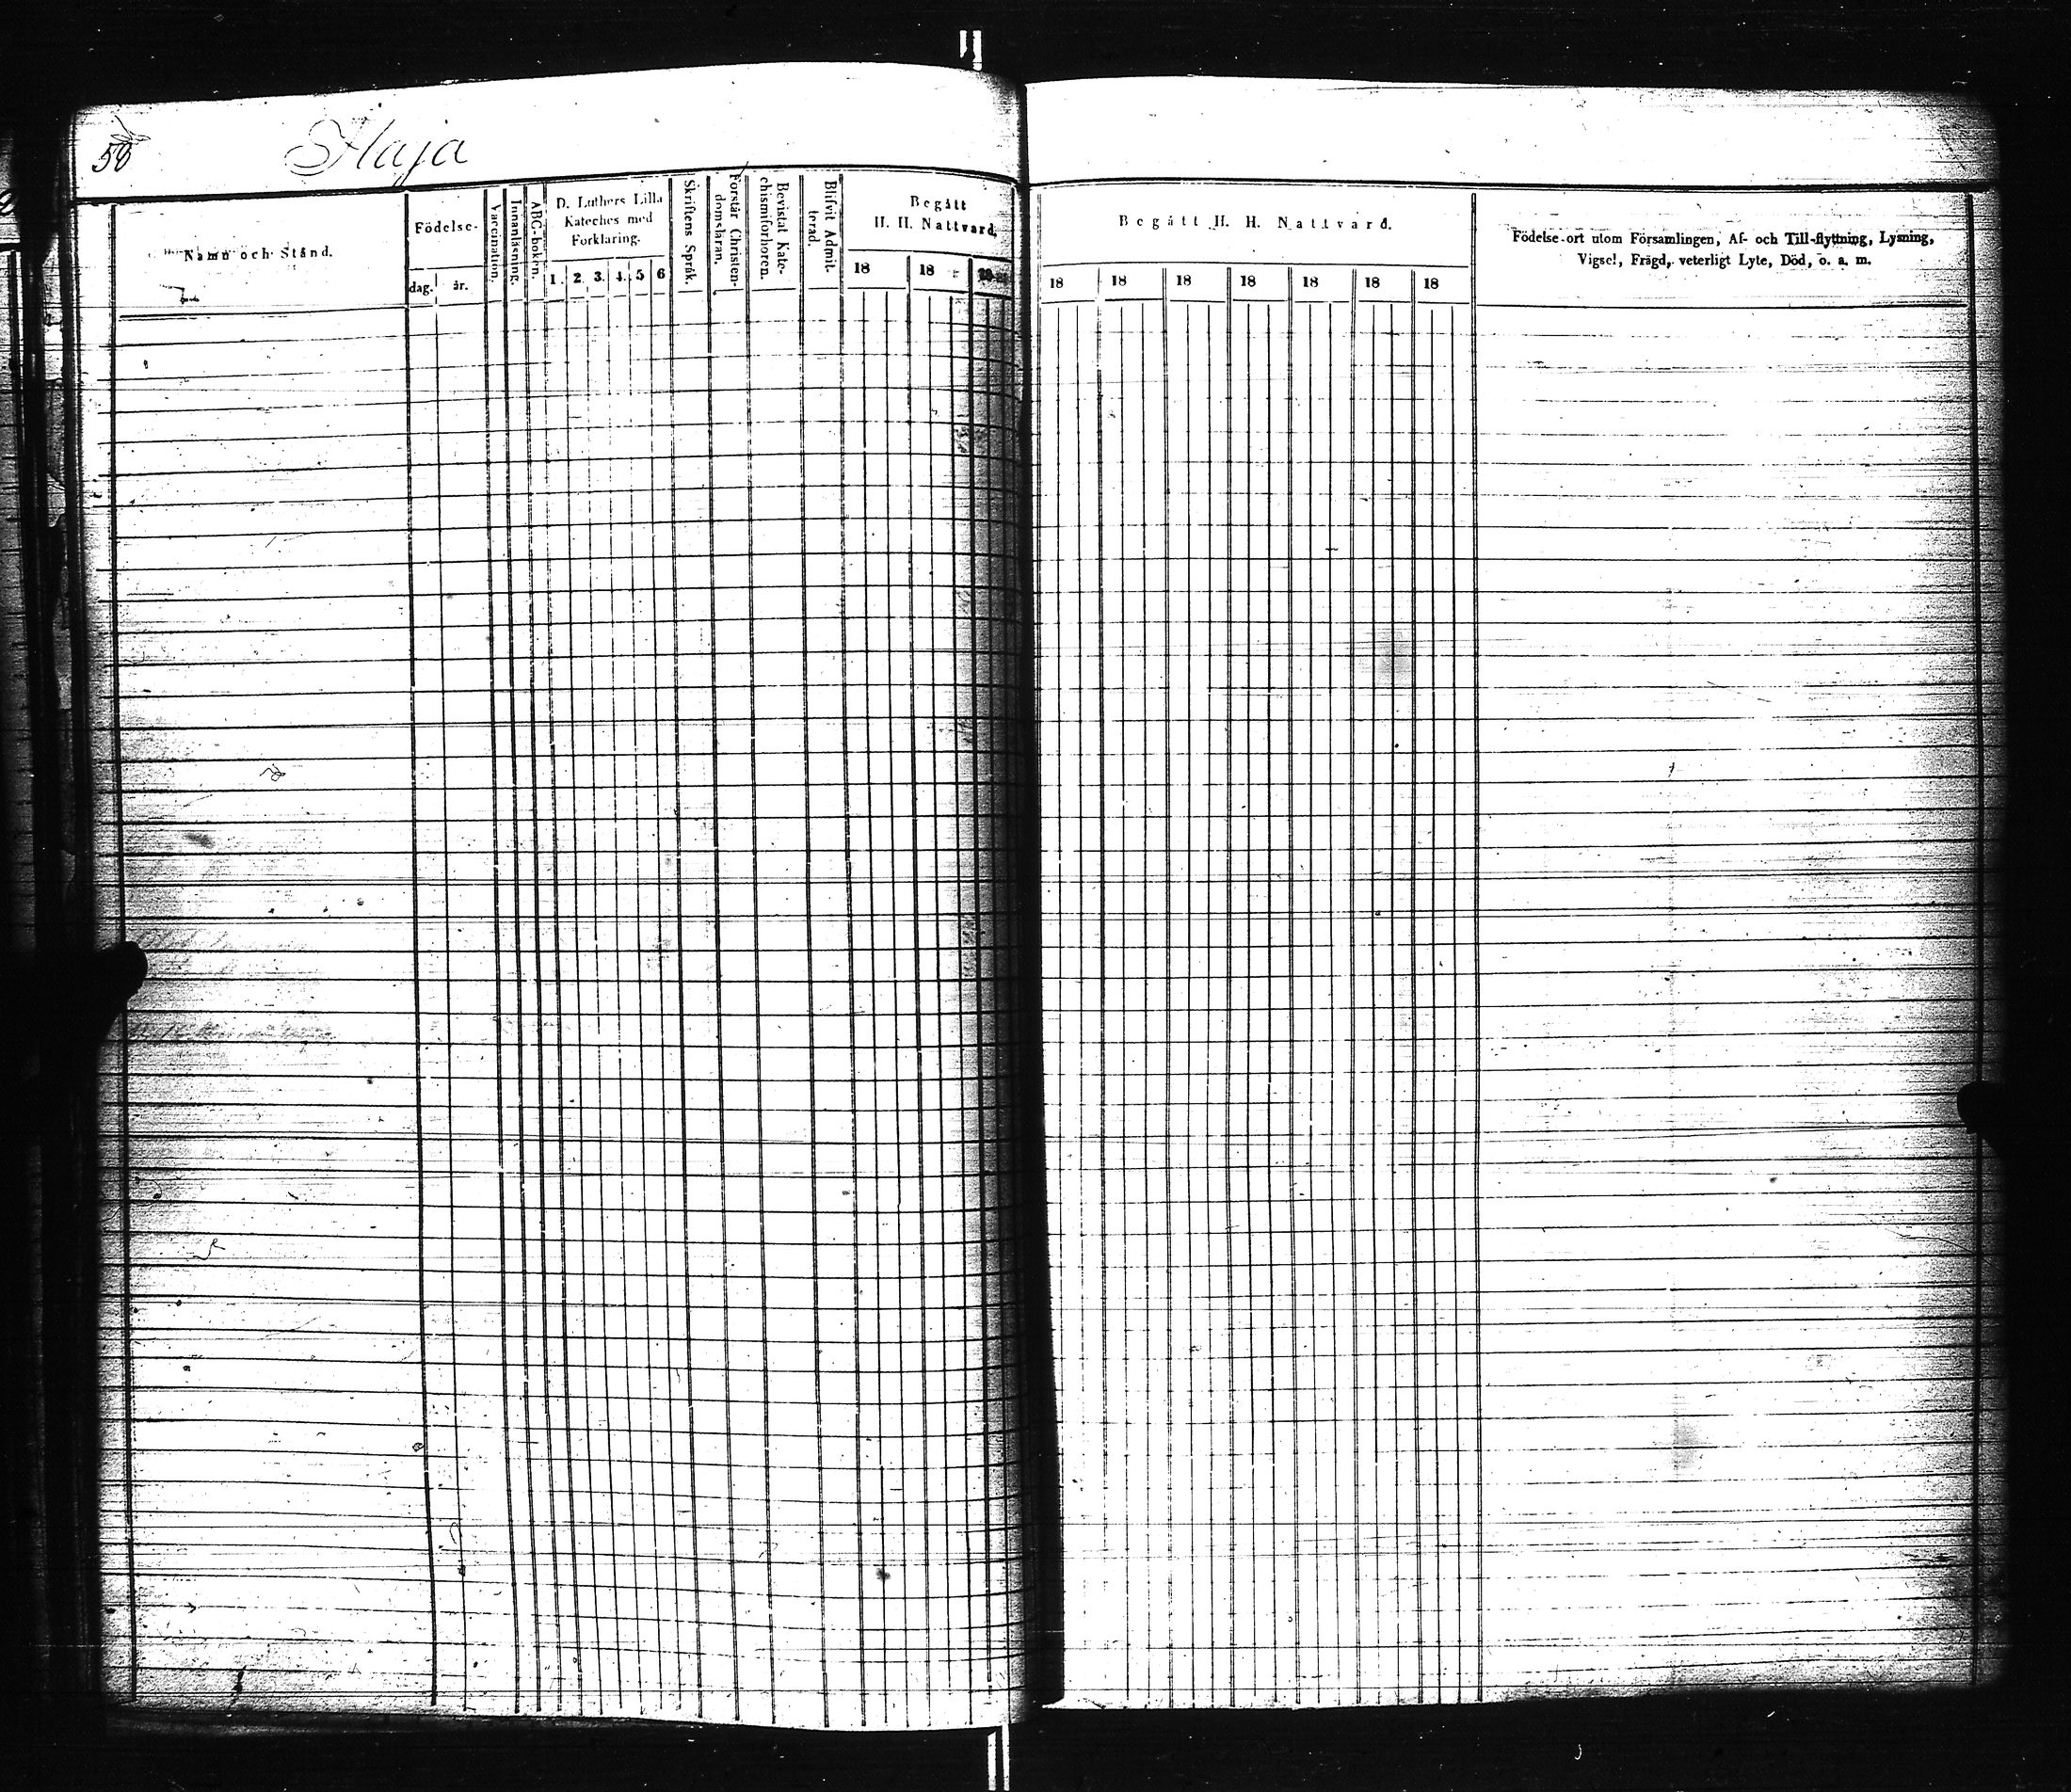 58
Haja
Namn och Stånd.
Födelse-
dag.
år.
Vaccination.
Innanläsning.
ABC-boken.
D. Luthers Lilla
Kateches med
Förklaring.
1. 2. 3. 4. 5 6
Skriftens Språk.
Förstår Christen-
domsläran.
Bevistat Kate-
chismiförhören.
Blifvit Admit-
terad.
Begått
H. H. Nattvard.
18 18 18
Begått H. H. Nattvard.
18 18 18 18 18 18 18
Födelse-ort utom Församlingen, Af- och Till-flyttning, Lysning,
Vigsel, Frägd, veterligt Lyte, Död, o. a. m.